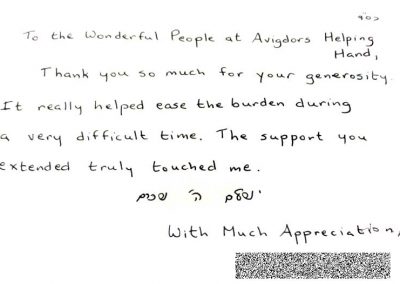 בס"ד
To the Wonderful People at Avigdors Helping
Hand,
Thank you so much for your generosity.
It really helped ease the burden during
a very difficult time. The support you
extended truly touched me.
ישלם ה' שכרם
With Much Appreciation,